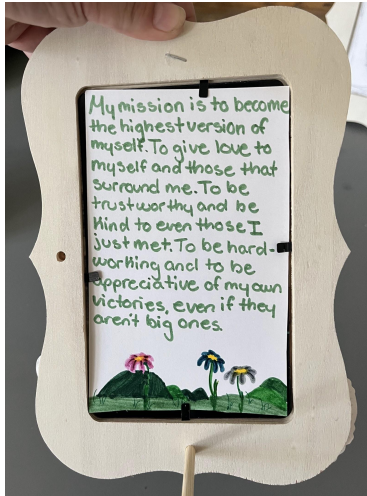 My mission is to become
the highest version of
myself. To give love to
myself and those that
surround me. To be
trustworthy and be
kind to even those I
just met. To be hard-
working and to be
appreciative of my own
victories, even if they
aren't big ones.